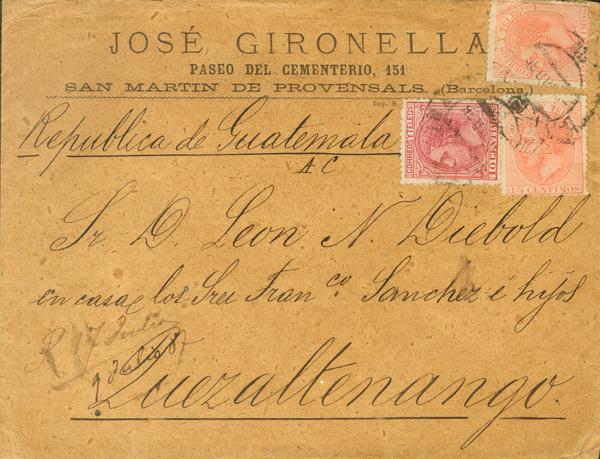 JOSÉ GIRONELLA
PASEO DEL CEMENTERIO, 151
SAN MARTIN DE PROVENSALS. (Barcelona.)
Imp. S
Republica de Guatemala
A C
CORREOS Y TELEG
10 CENTIMOS
15 CENTIMOS
Sr. D. Leon N. Diebold
en casa los Sres Franco. Sanchez é hijos
R 17 Julio
9 Julio 87
Quezaltenango.